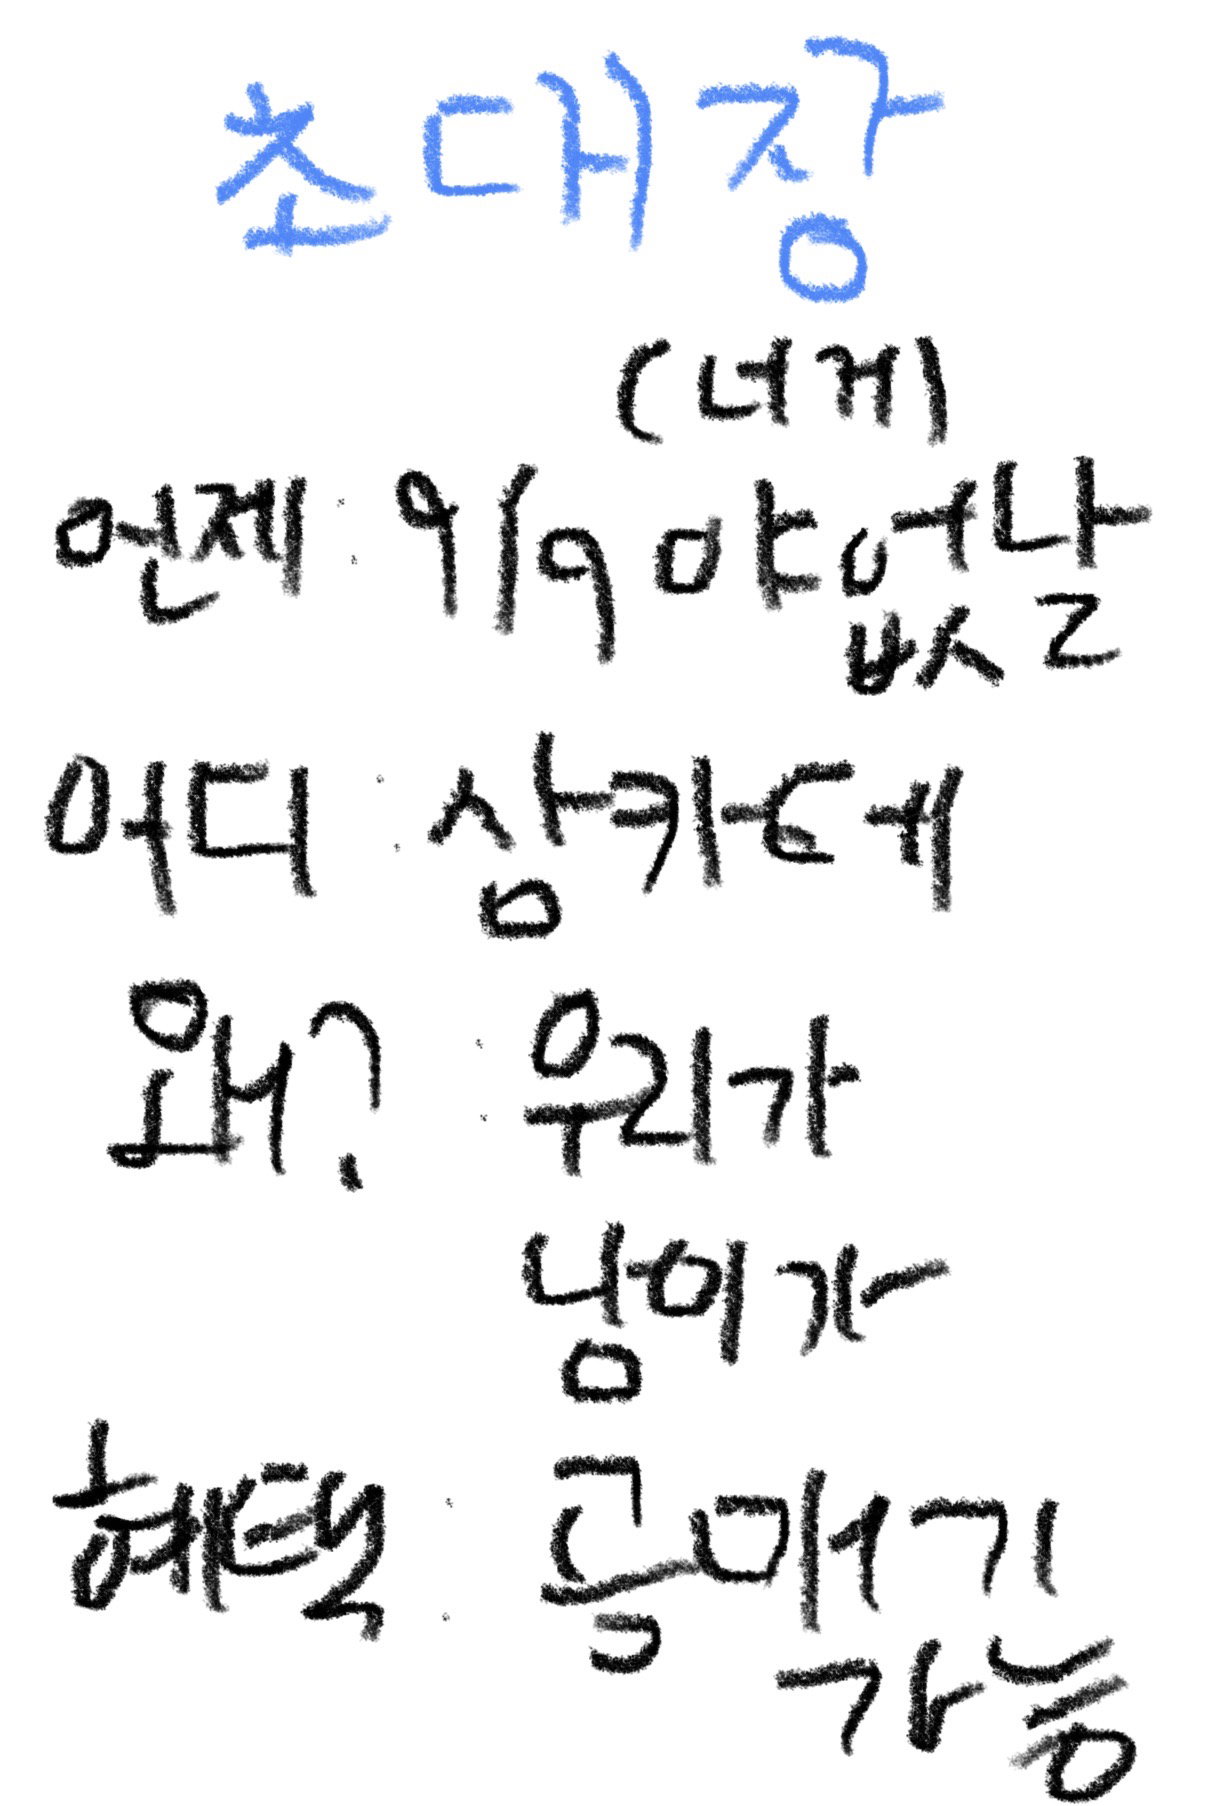 초대장
(너게)
언제 : 9/9 야없날
어디 : 삼카데
왜? : 우리가
남이가
혜택 : 매기
가능